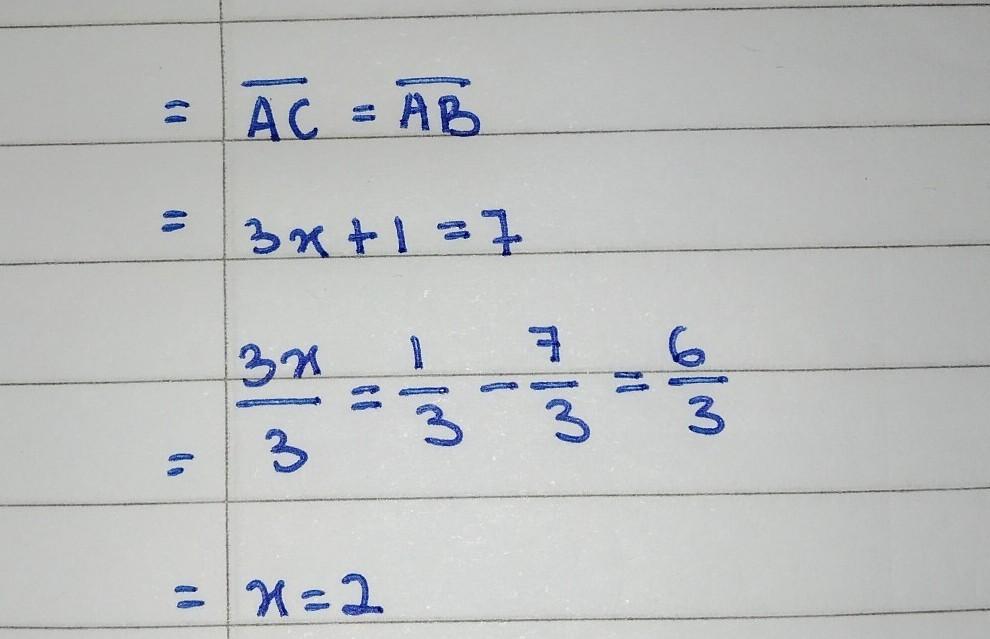 = A̅C̅ = A̅B̅
= 3x+1 = 7
= 3x/3 = 1/3 - 7/3 = 6/3
= x = 2